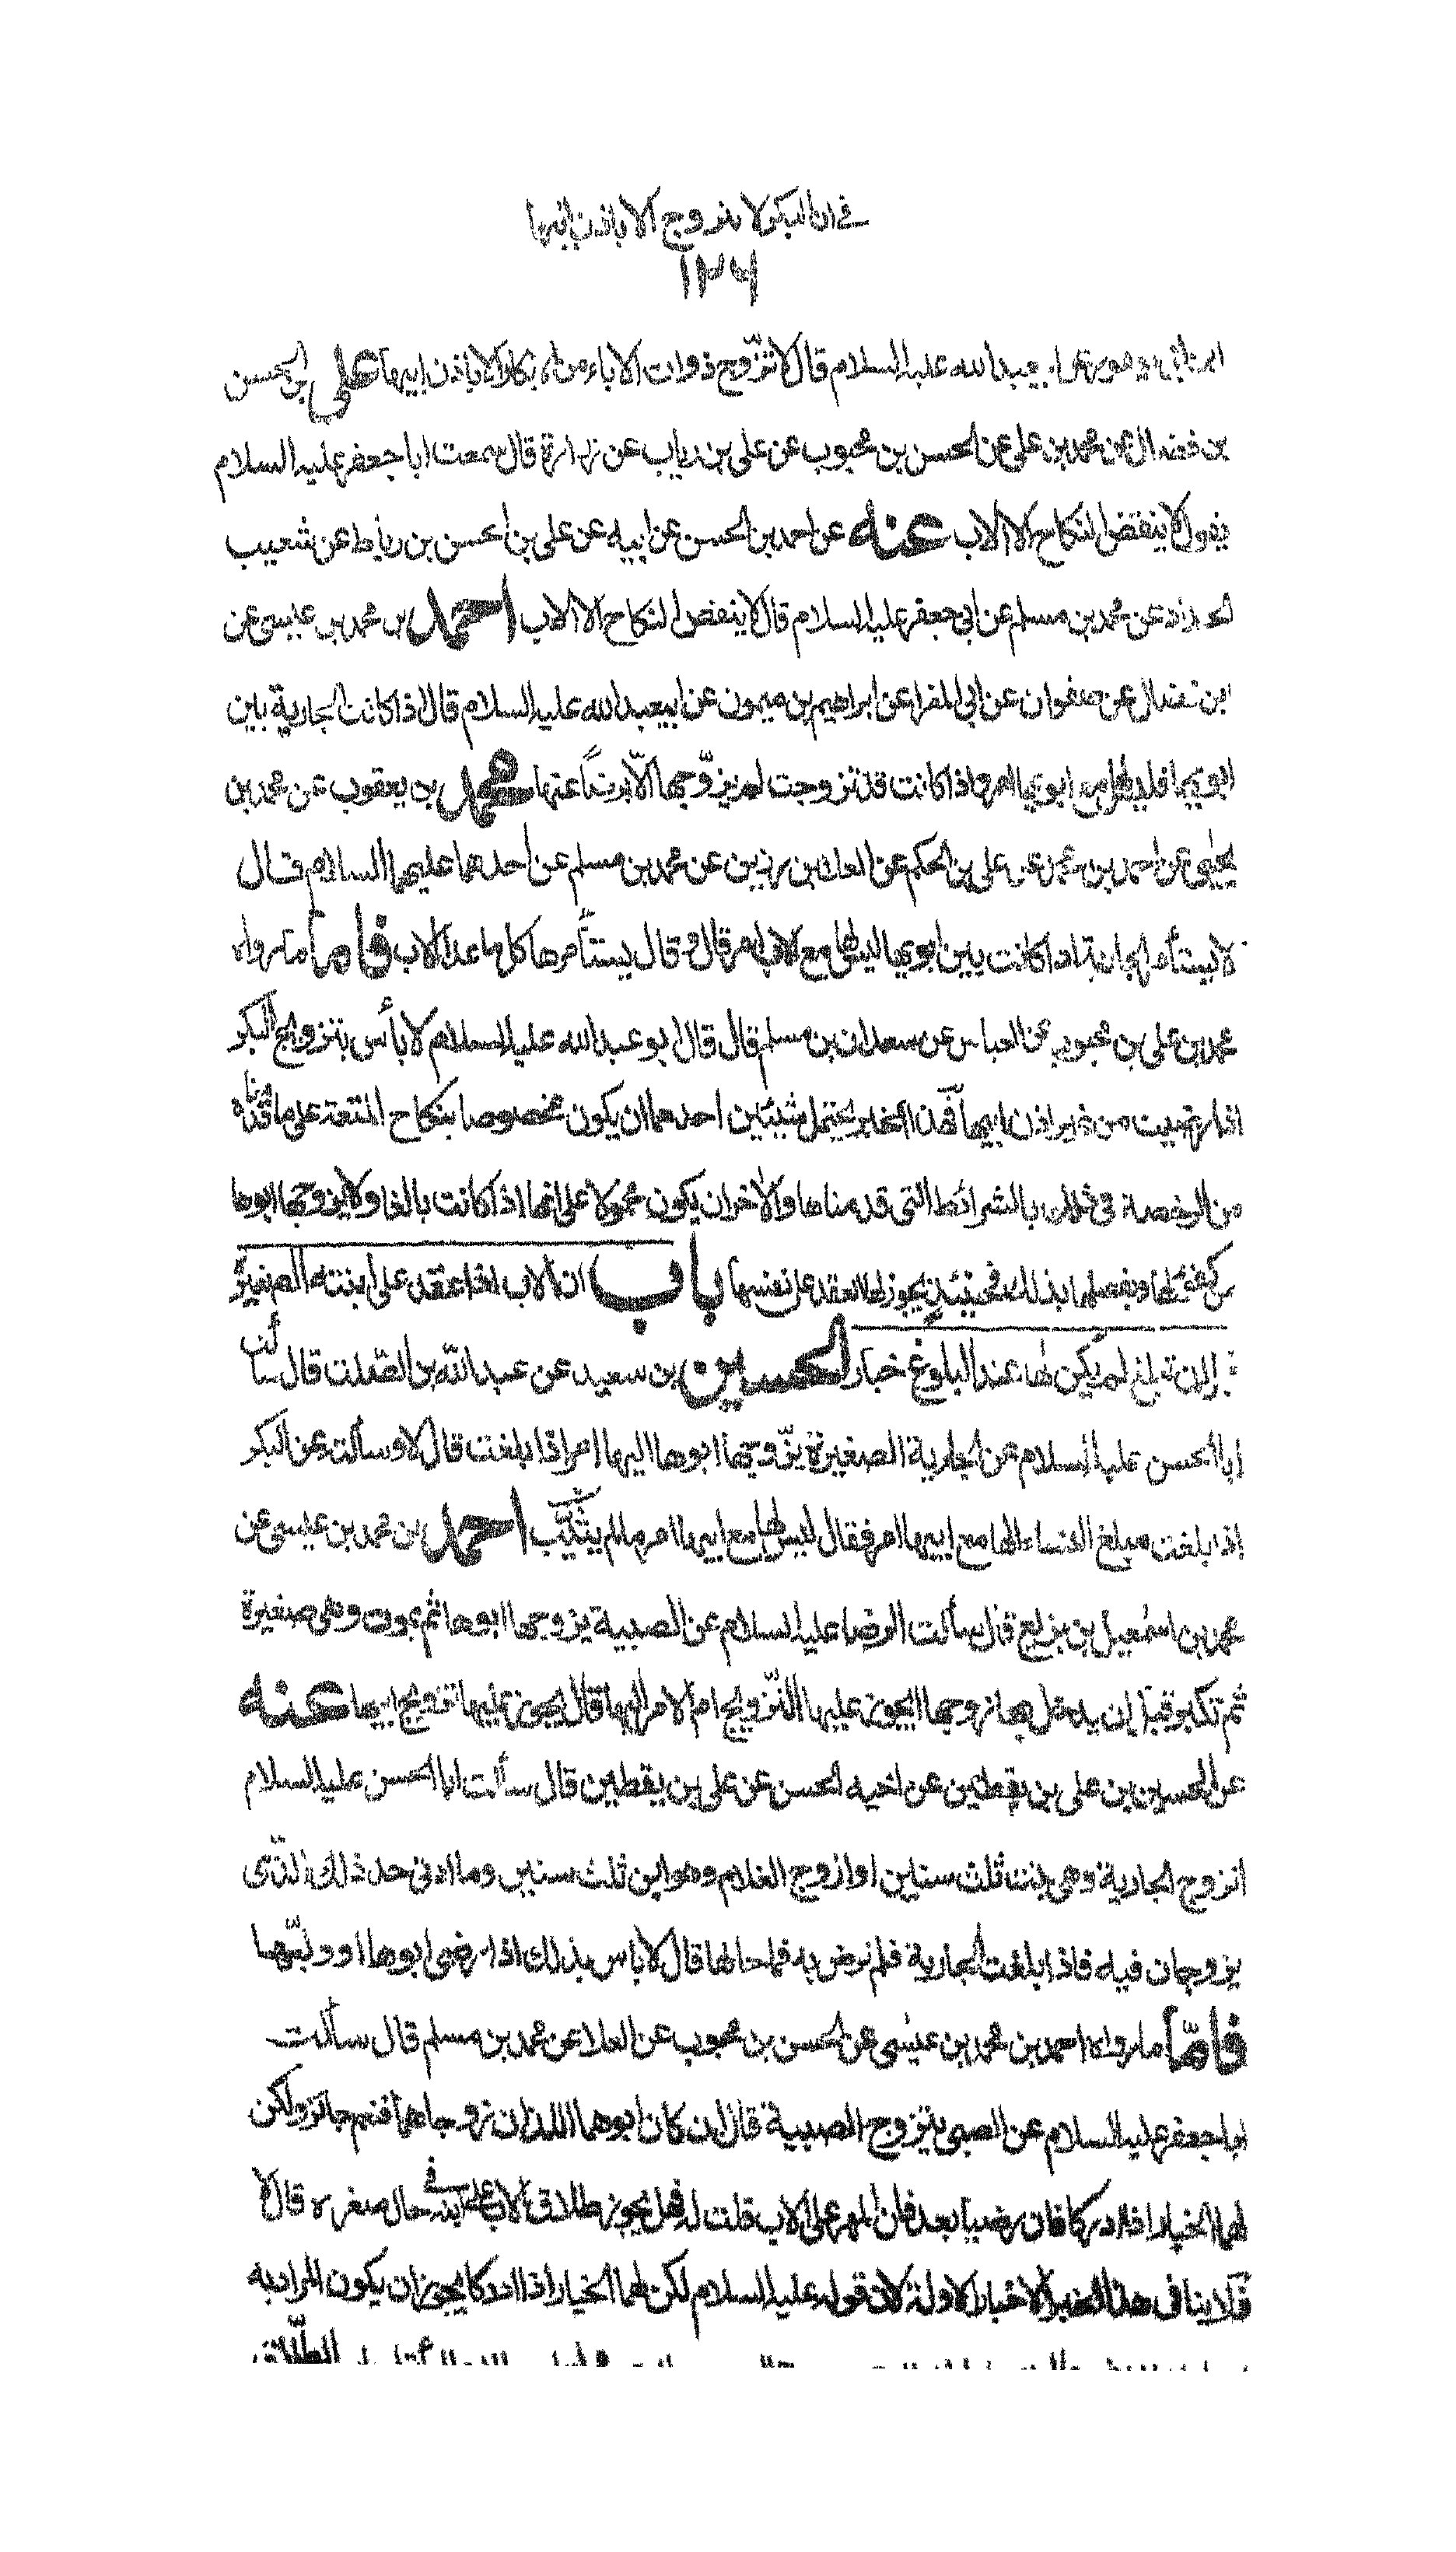 في ان البكر لا تزوج الا باذن ابيها
١٢٦
ابن ابي يعفور عن ابي عبد الله عليه السلام قال لا تزوّج ذوات الاباء من الابكار الا باذن ابيها علي بن الحسن
بن فضال عن محمد بن علي عن الحسن بن محبوب عن علي بن رياب عن زرارة قال سمعت ابا جعفر عليه السلام
يقول لا ينقض النكاح الا الاب عنه عن احمد بن الحسن عن ابيه عن علي بن الحسن بن رباط عن شعيب
الحداد عن محمد بن مسلم عن ابي جعفر عليه السلام قال لا ينقض النكاح الا الاب احمد بن محمد بن عيسى عن
ابن فضال عن صفوان عن ابي المغرا عن ابراهيم بن ميمون عن ابيعبد الله عليه السلام قال اذا كانت الجارية بين
ابويها فليس لها مع ابويها امر واذا كانت قد تزوجت لم يزوّجها الّا برضاً عنها محمد بن يعقوب عن محمد بن
يحيى عن احمد بن محمد عن علي بن الحكم عن العلاء بن رزين عن محمد بن مسلم عن احدهما عليهما السلام قال
لا يستأمر الجارية اذا كانت بين ابويها ليس لها مع الاب امر قال وقال يستأمرها كل ما عدا الاب فاما ما رواه
محمد بن علي بن محبوب عن العباس عن سعدان بن مسلم قال قال ابو عبد الله عليه السلام لا بأس بتزويج البكر
اذا رضيت من غير اذن ابيها فهذا الخبر يحتمل شيئين احدهما ان يكون مخصوصا بنكاح المتعة على ما قدمناه
من الرخصة في ذلك بالشرائط التي قدمناها والآخر ان يكون محمولا على انها اذا كانت بالغا ولا يزوجها ابوها
من كفؤ لها ويعضلها بذلك فحينئذ يجوز لها العقد على نفسها باب ان الاب اذا عقد على ابنته الصغيرة
قبل ان تبلغ لم يكن لها عند البلوغ خيار الحسين بن سعيد عن عبد الله بن الصّلت قال سألت
ابا الحسن عليه السلام عن الجارية الصغيرة يزّوجها ابوها الها امر اذا بلغت قال لا وسألته عن البكر
اذا بلغت مبلغ النساء الها مع ابيها امر فقال ليس لها مع ابيها امر ما لم يثيّب احمد بن محمد بن عيسى عن
محمد بن اسمعيل بن بزيع قال سألت الرضا عليه السلام عن الصبية يزوجها ابوها ثم يموت وهي صغيرة
ثم تكبر قبل ان يدخل بها زوجها ايجوز عليها التّزويج ام الامر اليها قال يجوز عليها تزويج ابيها عنه
عن الحسين بن علي بن يقطين عن اخيه الحسن عن علي بن يقطين قال سألت ابا الحسن عليه السلام
اتزوج الجارية وهي بنت ثلث سنين او ازوج الغلام وهو ابن ثلث سنين وما ادنى حد ذلك الذي
يزوجان فيه فاذا بلغت الجارية فلم ترض به فما حالها قال لا باس بذلك اذا رضي ابوها او وليّها
فامّا ما رواه احمد بن محمد بن عيسى عن الحسن بن محبوب عن العلا عن محمد بن مسلم قال سألت
ابا جعفر عليه السلام عن الصبي يتزوج الصبية قال ان كان ابوهما اللذان زوجاهما فنعم جائز ولكن
لهما الخيار اذا ادركا فان رضيا بعد فان المهر على الاب قلت له فهل يجوز طلاق الاب على ابنه في حال صغره قال لا
فلا ينافي هذا الخبر الاخبار الاولة لان قوله عليه السلام لكن لهما الخيار اذا ادركا يجوز ان يكون المراد به